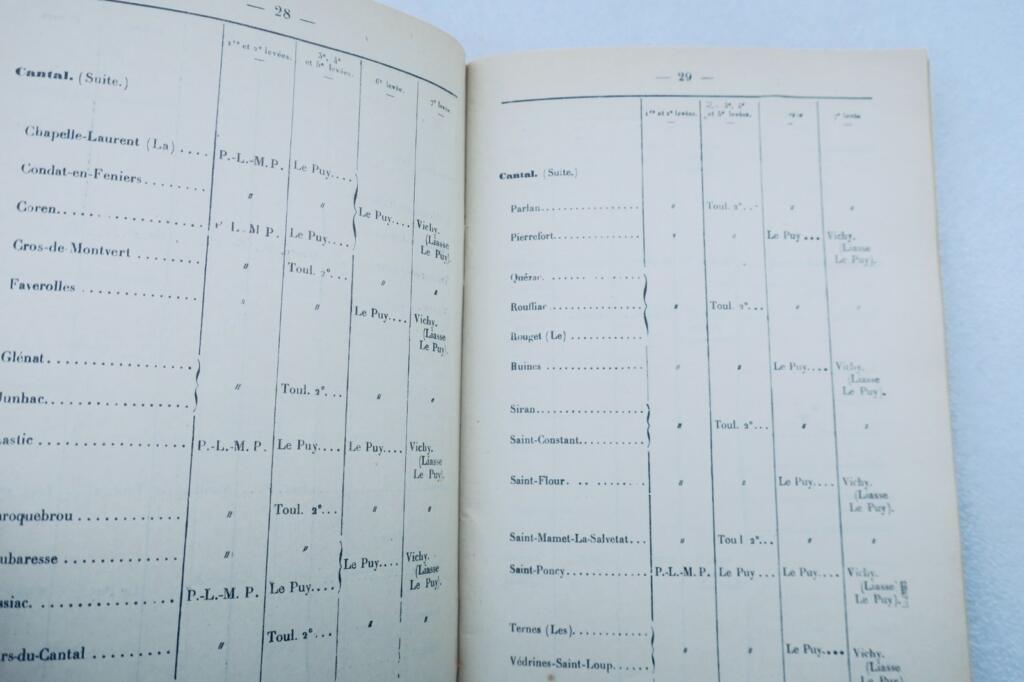 — 28 —
1re et 2e levées. 3e, 4e et 5e levées. 6e levée. 7e levée
Cantal. (Suite.)
Chapelle-Laurent (La).... P.-L.-M. P. Le Puy....
Condat-en-Feniers........ " " Le Puy.... Vichy. (Liasse Le Puy).
Coren................... L M P. Le Puy....
Cros-de-Montvert ....... " Toul. 2e... " "
Faverolles ............. " " Le Puy.... Vichy. (Liasse Le Puy).
Glénat.................. " Toul. 2e... " "
Junhac..................
Lastic ................. P.-L.-M. P. Le Puy.... Le Puy.... Vichy. (Liasse Le Puy).
aroquebrou ............. " Toul. 2e... " "
ubaresse ............... " " Le Puy.... Vichy. (Liasse Le Puy).
ssiac................... P.-L.-M. P. Le Puy....
rs-du-Cantal ........... " Toul. 2e... " "
— 29 —
1re et 2e levées. et 5e levées. 7e levée
Cantal. (Suite.)
Parlan.................. " Toul. 2e... " "
Pierrefort.............. " " Le Puy... Vichy. (Liasse Le Puy).
Quézac..................
Rouffiac................ " Toul. 2e... " "
Rouget (Le) ............
Ruines ................. " " Le Puy.... Vichy. (Liasse Le Puy).
Siran................... " Toul. 2e... " "
Saint-Constant..........
Saint-Flour. .. ........ " " Le Puy.... Vichy. (Liasse Le Puy).
Saint-Mamet-La-Salvetat... " Toul 2e... " "
Saint-Poncy ............ P.-L.-M. P. Le Puy ... Le Puy.... Vichy. (Liasse Le Puy).
Ternes (Les)............ " " Le Puy.... Vichy. (Liasse
Védrines-Saint-Loup......